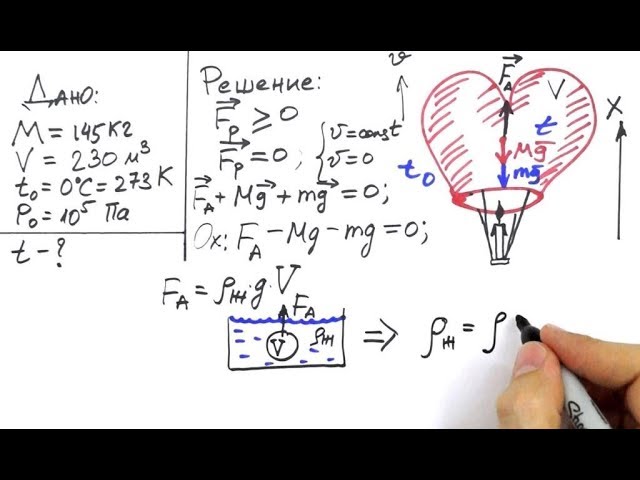 Дано:
M = 145 кг
V = 230 м³
t₀ = 0°C = 273 K
P₀ = 10⁵ Па
t - ?
Решение:
F⃗р ⩾ 0
F⃗р = 0; { v⃗ = const
v = 0
F⃗A + Mg⃗ + mg⃗ = 0;
Ox: FA - Mg - mg = 0;
FA = ρж·g·V
FA
V
ρж
⇒ ρж = ρ
v⃗
F⃗A
V
t
Mg⃗
mg⃗
t₀
X
Sha